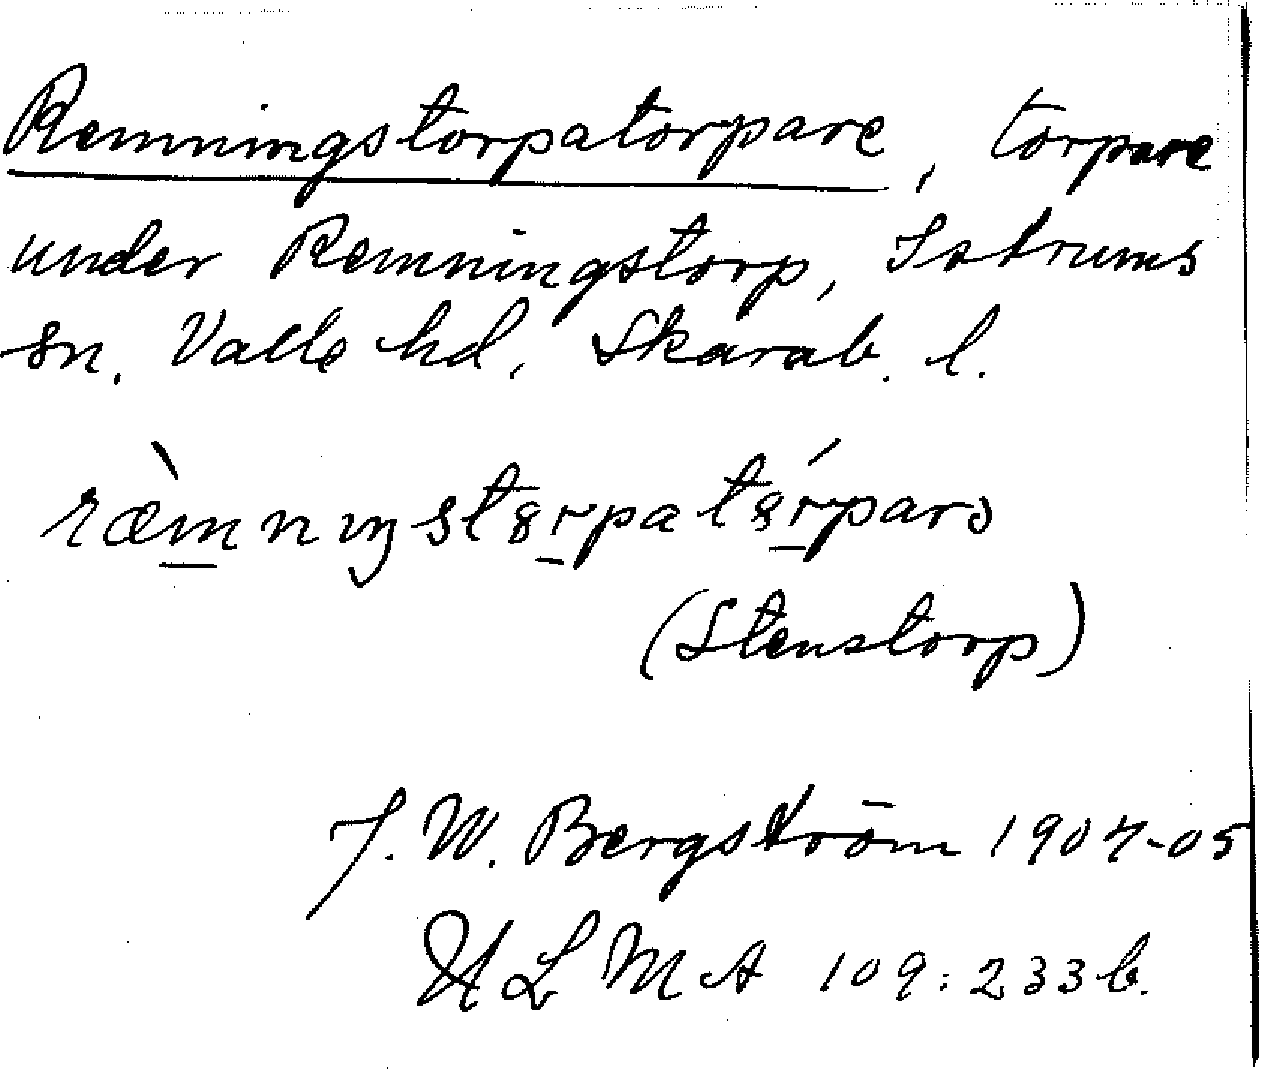 Remningstorpatorpare, torpare
under Remningstorp, Istrums
sn. Valle hd, Skarab. l.
ræ̀mnıŋstɞrpatɞ́rparə
(Stenstorp)
J. W. Bergström 1904-05
ULMA 109:233b.